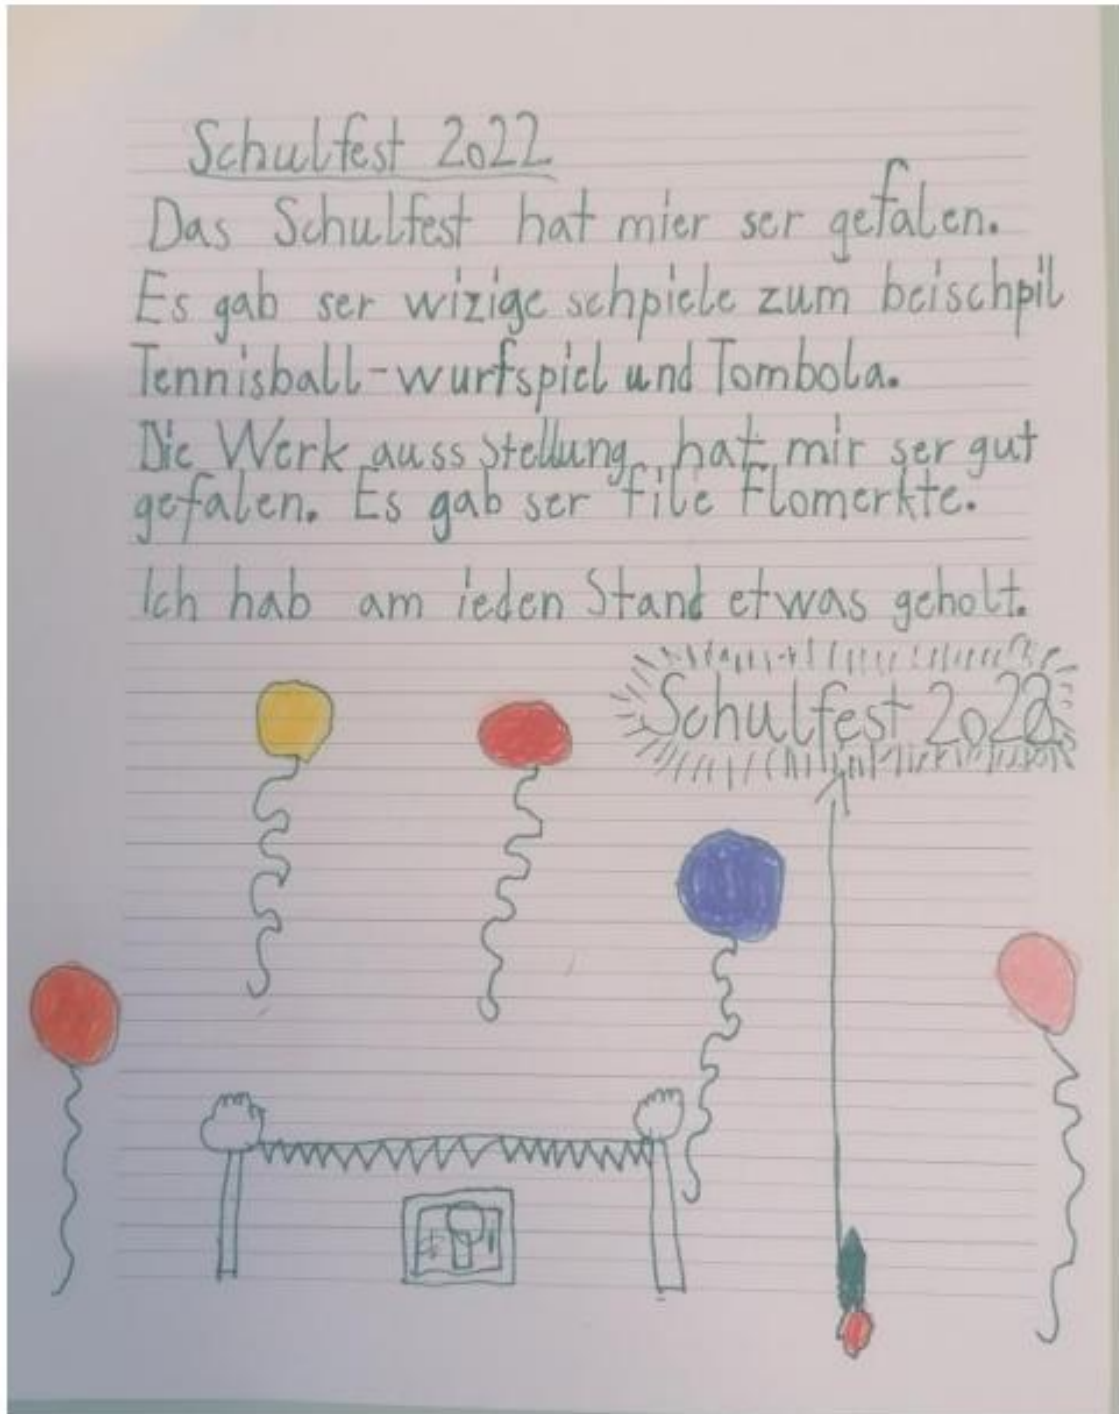 Schulfest 2022
Das Schulfest hat mier ser gefalen.
Es gab ser wizige schpiele zum beischpil
Tennisball-wurfspiel und Tombola.
Die Werk auss stellung hat mir ser gut
gefalen. Es gab ser file Flomerkte.
Ich hab am ieden Stand etwas geholt.
Schulfest 2022